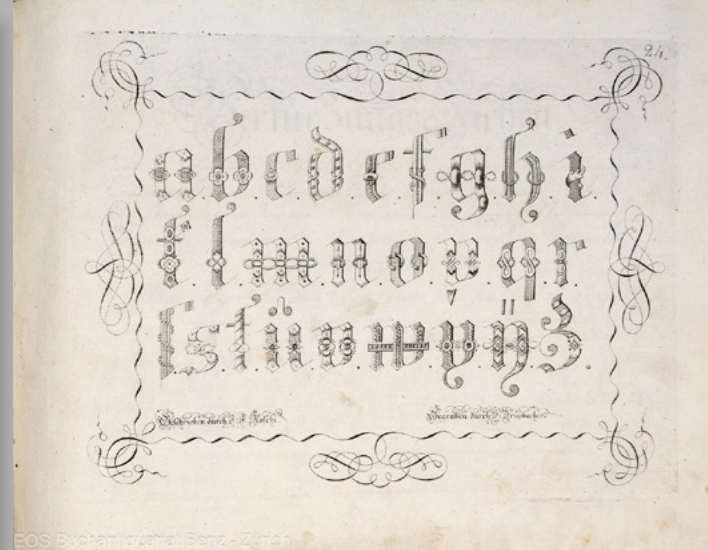 24.
a b c d e f g h i .
k . l . m . n . o . p . q . r .
ſ s . t . ü . v . w . y . ÿ . z .
Geschrieben durch
Gegraben durch
EOS Buchantiquariat Benz - Zürich